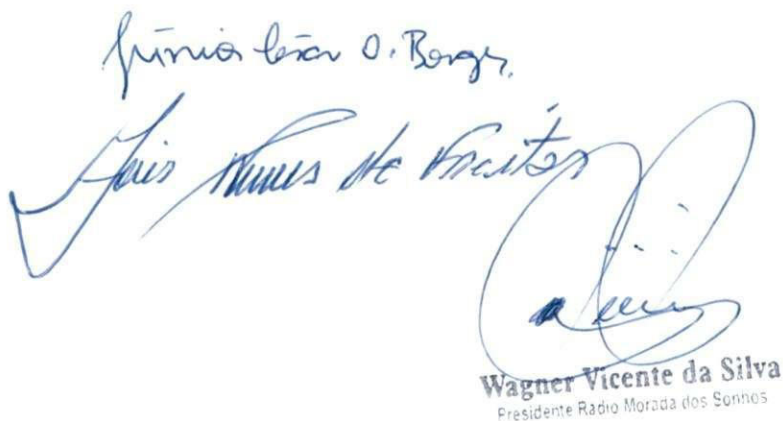 Júnior César O. Borges
Nunes de Freitas
Wagner Vicente da Silva
Presidente Radio Morada dos Sonhos